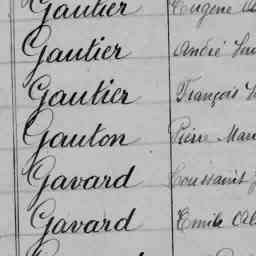 Gautier Eugène
Gautier André
Gautier François
Gauton Pierre
Gavard Toussaint
Gavard Emile